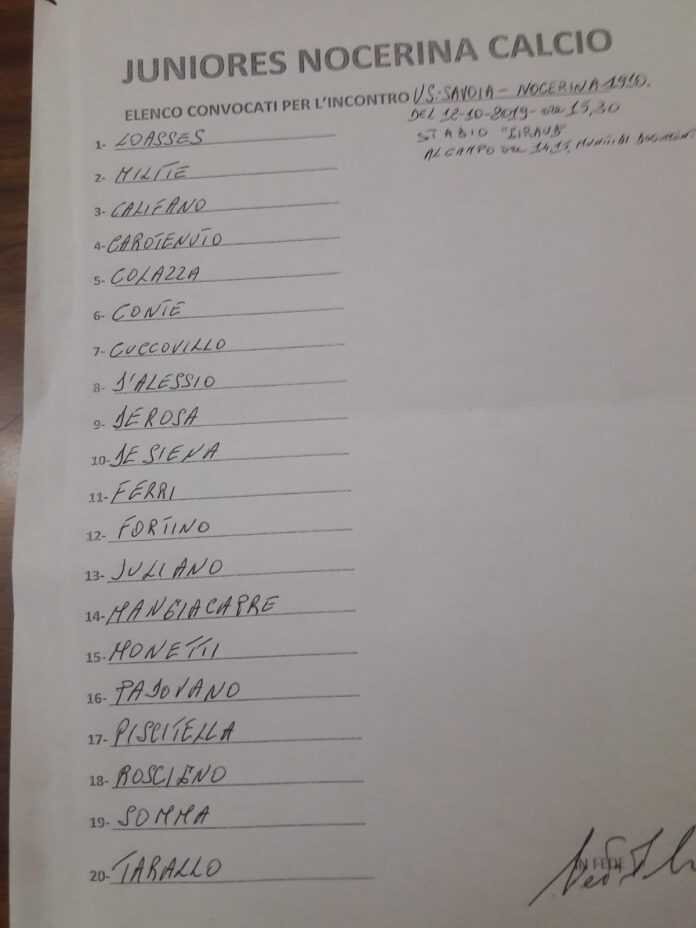 JUNIORES NOCERINA CALCIO
ELENCO CONVOCATI PER L'INCONTRO US. SAVOIA - NOCERINA 1910.
DEL 12-10-2019- ore 15,30
STADIO "GIRAUD"
AL CAMPO ore 14,15, MUNITI DI
1- LOASSES
2- MILITE
3- CALIFANO
4- CAROTENUTO
5- COLAZZA
6- CONTE
7- CUCCOVILLO
8- D'ALESSIO
9- DEROSA
10- DE SIENA
11- FERRI
12- FORTINO
13- JULIANO
14- MANGIACAPRE
15- MONETTI
16- PADOVANO
17- PISCITELLA
18- ROSCIGNO
19- SOMMA
20- TARALLO
IN FEDE